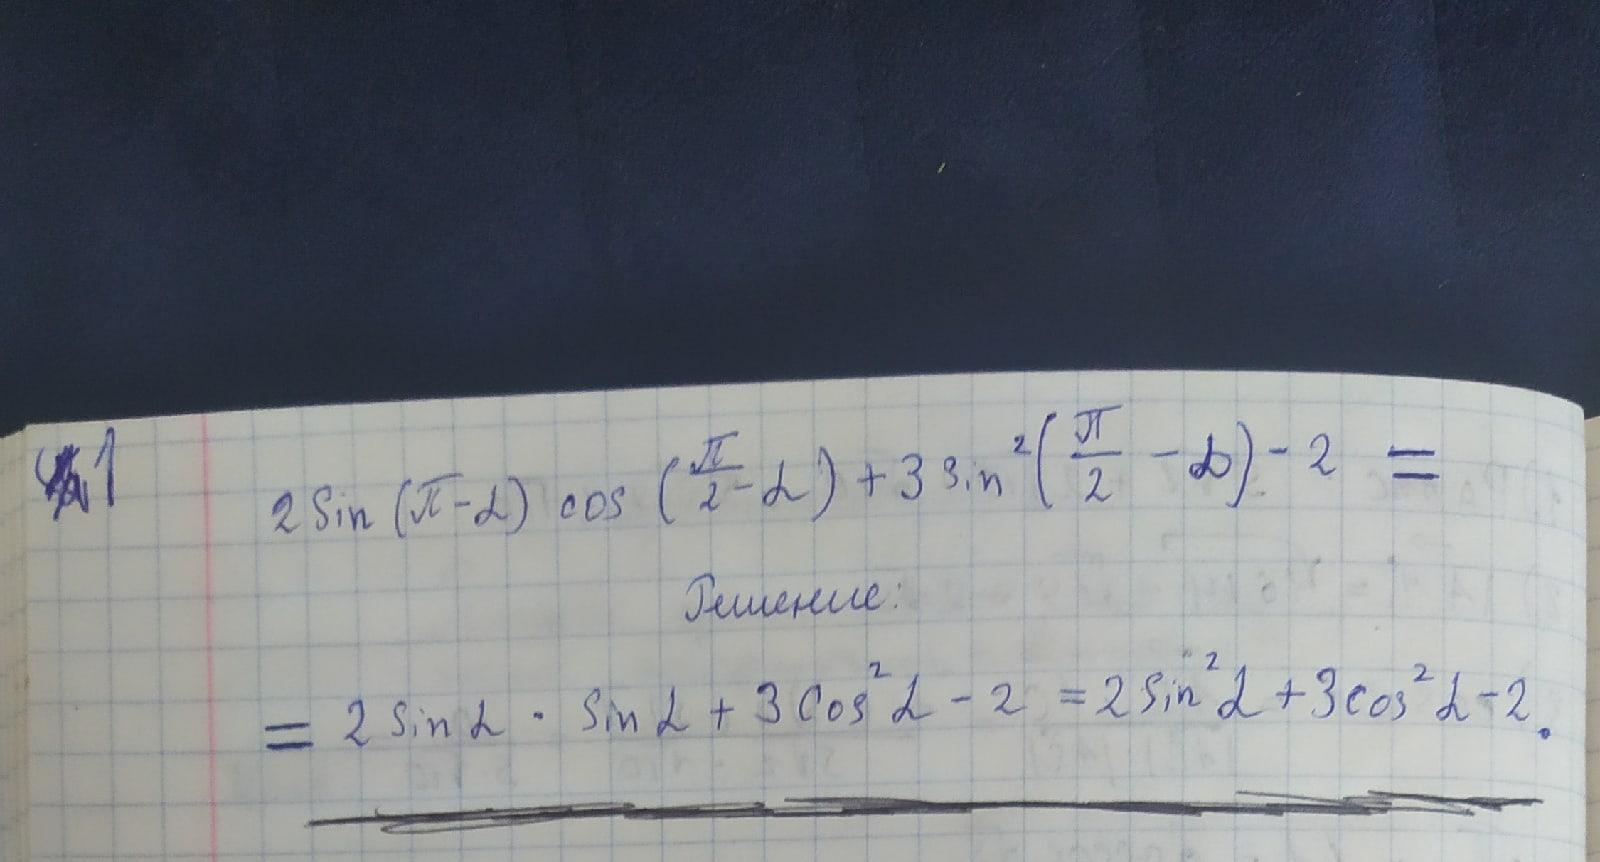 1
2 sin (π-α) cos (π/2 - α) + 3 sin²(π/2 - α) - 2 =
Решение:
= 2 sin α · sin α + 3 cos² α - 2 = 2 sin² α + 3 cos² α - 2.